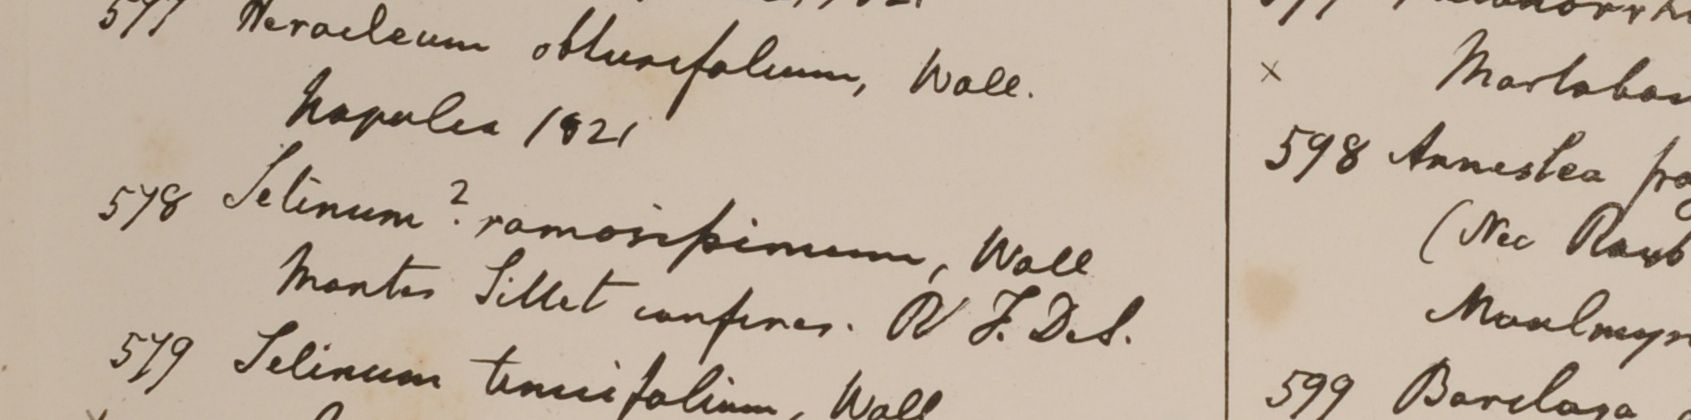 577 Heracleum obtusifolium, Wall.
Napulea 1821
578 Selinum? ramosissimum, Wall
Montes Sillet confines. F. De S.
579 Selinum tenuifolium, Wall
×
Martaban
598 Anneslea
(Nec Roxb
Moulmyn
599 Barclaya